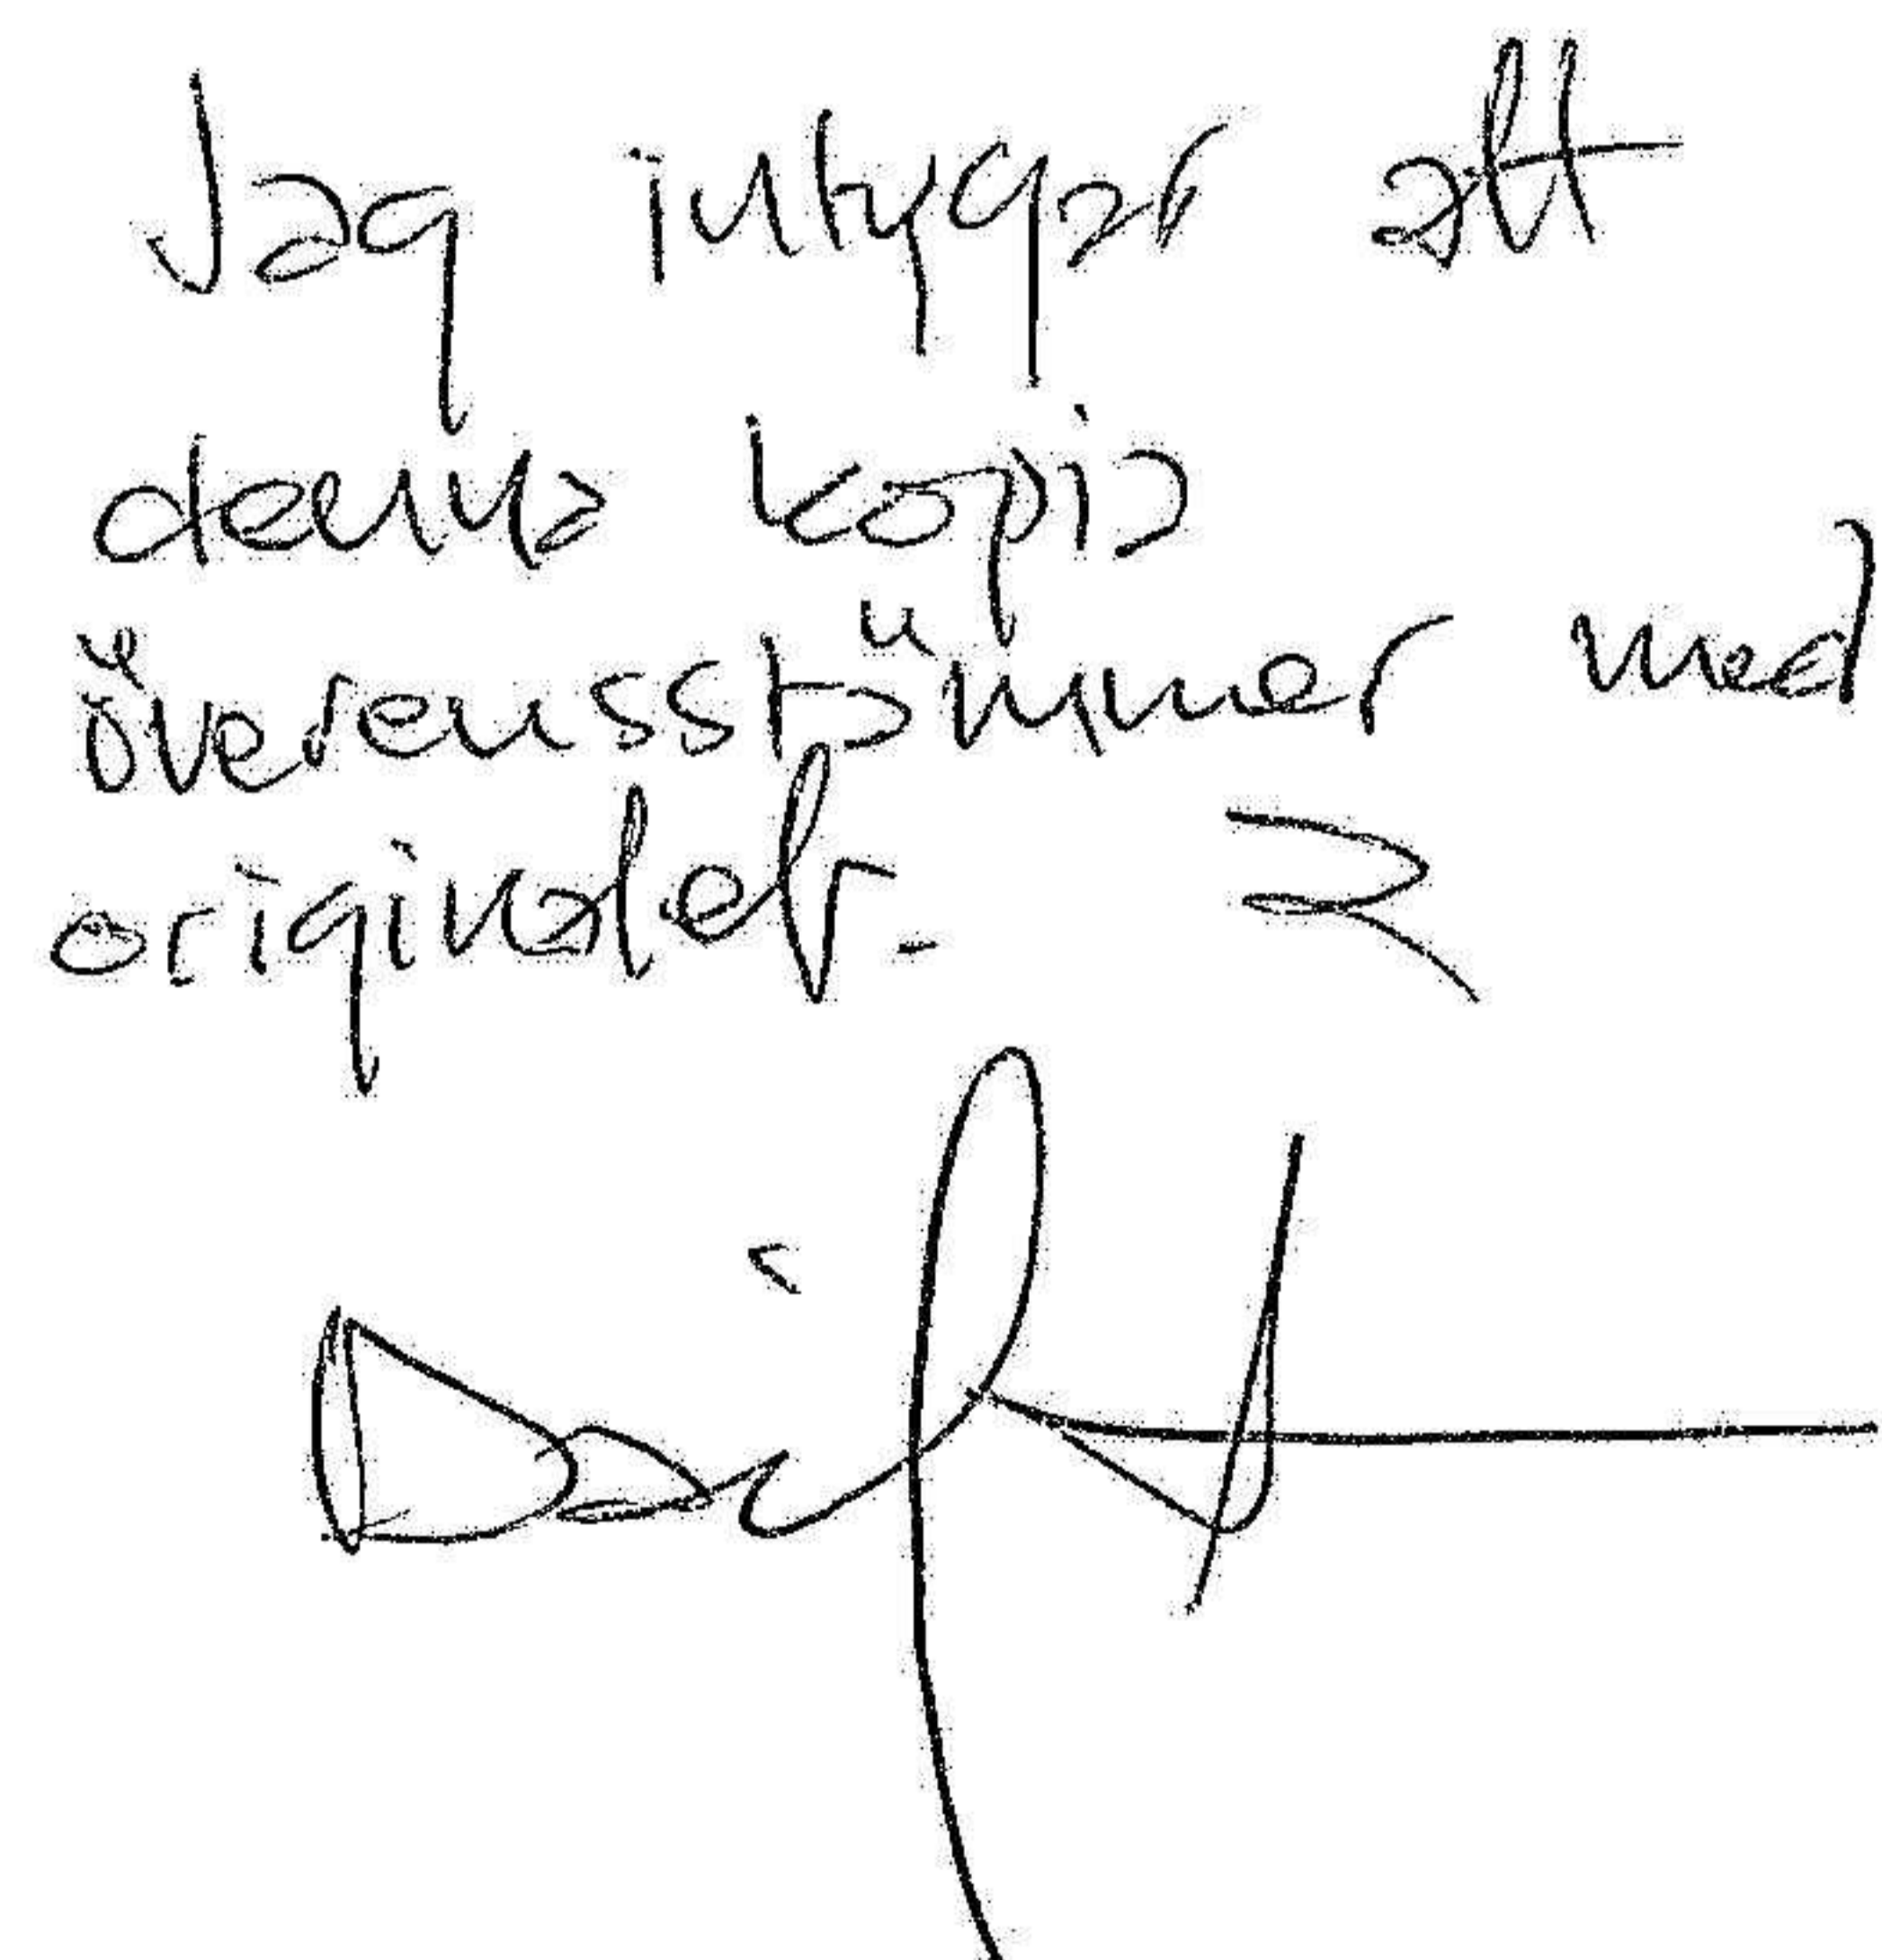 Jag intygar att
denna kopia
överensstämmer med
originalet.